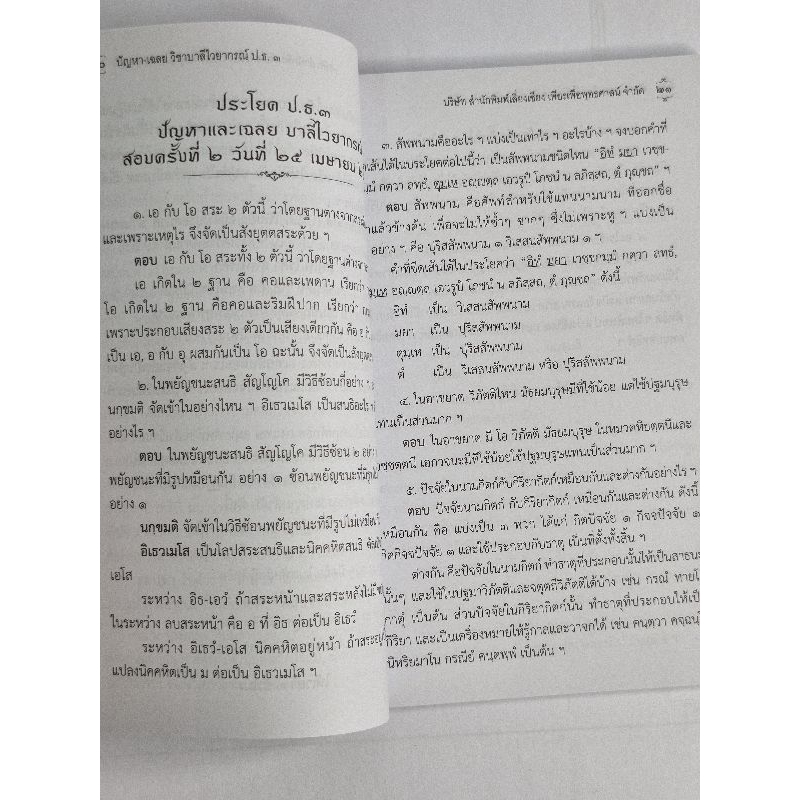 ปัญหา-เฉลย วิชาบาลีไวยากรณ์ ป.ธ. ๓
ประโยค ป.ธ.๓
ปัญหาและเฉลย บาลีไวยากรณ์
สอบครั้งที่ ๒ วันที่ ๒๕ เมษายน
๑. เอ กับ โอ สระ ๒ ตัวนี้ ว่าโดยฐานต่าง
และเพราะเหตุไร จึงจัดเป็นสังยุตตสระด้วย ฯ
ตอบ เอ กับ โอ สระทั้ง ๒ ตัวนี้ ว่าโดยฐานต่าง
เอ เกิดใน ๒ ฐาน คือ คอและเพดาน เรียกว่า
โอ เกิดใน ๒ ฐาน คือคอและริมฝีปาก เรียกว่า
เพราะประกอบเสียงสระ ๒ ตัวเป็นเสียงเดียวกัน คือ
เป็น เอ, อ กับ อุ ผสมกันเป็น โอ ฉะนั้น จึงจัดเป็น
๒. ในพยัญชนะสนธิ สัญโญโค มีวิธีซ้อนกี่อย่าง ฯ
นกฺขมติ จัดเข้าในอย่างไหน ฯ อิเธวเมโส เป็นสนธิอะไร
อย่างไร ฯ
ตอบ ในพยัญชนะสนธิ สัญโญโค มีวิธีซ้อน ๒
พยัญชนะที่มีรูปเหมือนกัน อย่าง ๑ ซ้อนพยัญชนะที่
อย่าง ๑
นกฺขมติ จัดเข้าในวิธีซ้อนพยัญชนะที่มีรูปไม่เหมือน
อิเธวเมโส เป็นโลปสระสนธิและนิคคหิตสนธิ
เอโส
ระหว่าง อิธ-เอวํ ถ้าสระหน้าและสระหลังไม่มี
ในระหว่าง ลบสระหน้า คือ อ ที่ อิธ ต่อเป็น อิเธวํ
ระหว่าง อิเธวํ-เอโส นิคคหิตอยู่หน้า ถ้าสระ
แปลงนิคคหิตเป็น ม ต่อเป็น อิเธวเมโส ฯ
บริษัท สำนักพิมพ์เลี่ยงเชียง เพียรเพื่อพุทธศาสน์ จำกัด ๒๑
๓. สัพพนามคืออะไร ฯ แบ่งเป็นเท่าไร ฯ อะไรบ้าง ฯ จงบอกคำที่
เส้นใต้ในประโยคต่อไปนี้ว่า เป็นสัพพนามชนิดไหน “อิทํ มยา เวชฺช-
กมฺมํ กตฺวา ลทฺธํ, ตุมฺเห อญฺญตฺถ เอวรูปํ โภชนํ น ลภิสฺสถ, ตํ ภุญฺชถ” ฯ
ตอบ สัพพนาม คือศัพท์สำหรับใช้แทนนามนาม ที่ออกชื่อ
แล้วข้างต้น เพื่อจะไม่ให้ซ้ำๆ ซากๆ ซึ่งไม่เพราะหู ฯ แบ่งเป็น
อย่าง ฯ คือ ปุริสสัพพนาม ๑ วิเสสนสัพพนาม ๑ ฯ
คำที่ขีดเส้นใต้ในประโยคว่า “อิทํ มยา เวชฺชกมฺมํ กตฺวา ลทฺธํ,
ตุมฺเห อญฺญตฺถ เอวรูปํ โภชนํ น ลภิสฺสถ, ตํ ภุญฺชถ” ดังนี้
อิทํ เป็น วิเสสนสัพพนาม
มยา เป็น ปุริสสัพพนาม
ตุมฺเห เป็น ปุริสสัพพนาม
ตํ เป็น วิเสสนสัพพนาม หรือ ปุริสสัพพนาม
๔. ในอาขยาต วิภัตติไหน มัธยมบุรุษมีที่ใช้น้อย แต่ใช้ปฐมบุรุษ
แทนเป็นส่วนมาก ฯ
ตอบ ในอาขยาต มี โอ วิภัตติ มัธยมบุรุษ ในหมวดหิยัตตนีและ
อัชชัตตนี เอกวจนะมีที่ใช้น้อยใช้ปฐมบุรุษแทนเป็นส่วนมาก ฯ
๕. ปัจจัยในนามกิตก์กับกิริยากิตก์เหมือนกันและต่างกันอย่างไร ฯ
ตอบ ปัจจัยนามกิตก์ กับกิริยากิตก์ เหมือนกันและต่างกัน ดังนี้
เหมือนกัน คือ แบ่งเป็น ๓ พวก ได้แก่ กิตปัจจัย ๑ กิจจปัจจัย ๑
กิตกิจจปัจจัย ๑ และใช้ประกอบกับธาตุ เป็นที่ตั้งทั้งสิ้น ฯ
ต่างกัน คือปัจจัยในนามกิตก์ ทำธาตุที่ประกอบนั้นให้เป็นสาธนะ
นั้นๆ และใช้ในปฐมาวิภัตติและจตุตถีวิภัตติได้บ้าง เช่น กรณํ ทายโก
กาตุํ เป็นต้น ส่วนปัจจัยในกิริยากิตก์นั้น ทำธาตุที่ประกอบให้เป็น
กิริยา และเป็นเครื่องหมายให้รู้กาลและวาจกได้ เช่น คนฺตฺวา
นิหริยมาโน กรณียํ คนฺตพฺพํ เป็นต้น ฯ